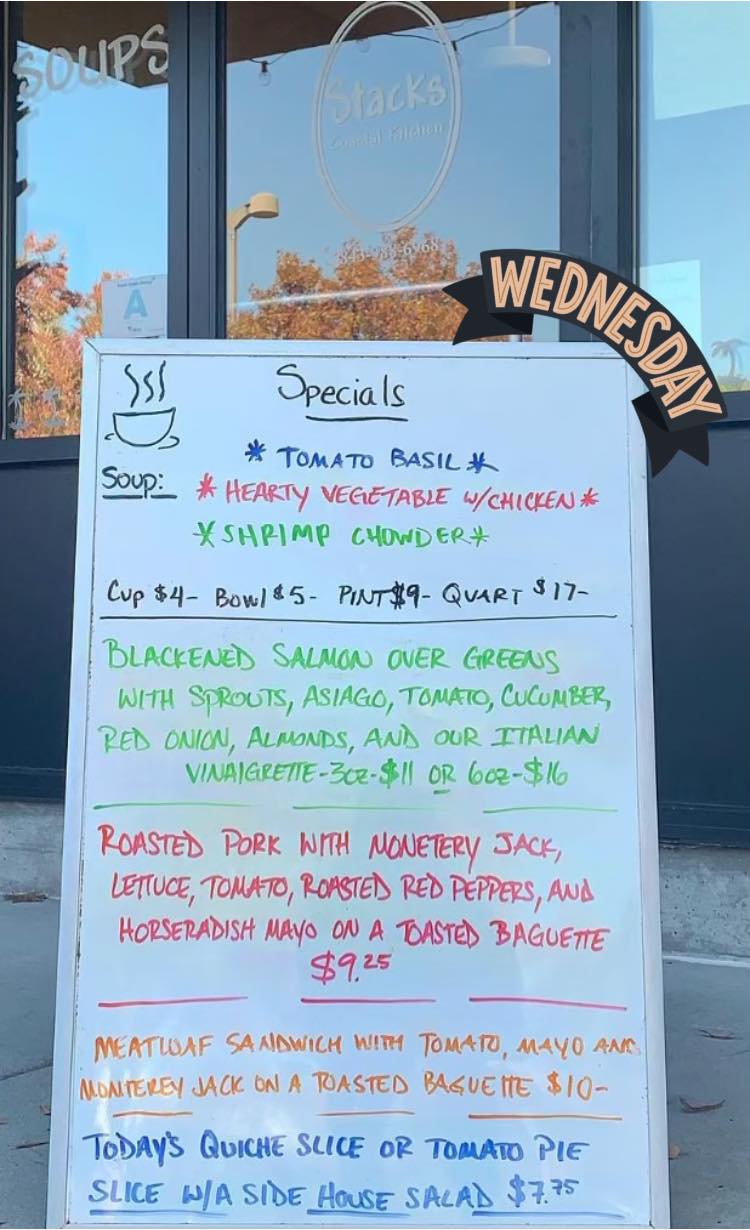 SOUPS
Stacks
Coastal Kitchen
A
WEDNESDAY
Specials
Soup:
* TOMATO BASIL *
* HEARTY VEGETABLE W/CHICKEN *
* SHRIMP CHOWDER *
CUP $4- BOWL $5- PINT $9- QUART $17-
BLACKENED SALMON OVER GREENS
WITH SPROUTS, ASIAGO, TOMATO, CUCUMBER,
RED ONION, ALMONDS, AND OUR ITALIAN
VINAIGRETTE-3OZ-$11 OR 6OZ-$16
ROASTED PORK WITH MONETERY JACK,
LETTUCE, TOMATO, ROASTED RED PEPPERS, AND
HORSERADISH MAYO ON A TOASTED BAGUETTE
$9.25
MEATLOAF SANDWICH WITH TOMATO, MAYO AND
MONTEREY JACK ON A TOASTED BAGUETTE $10-
TODAY'S QUICHE SLICE OR TOMATO PIE
SLICE W/A SIDE HOUSE SALAD $7.75